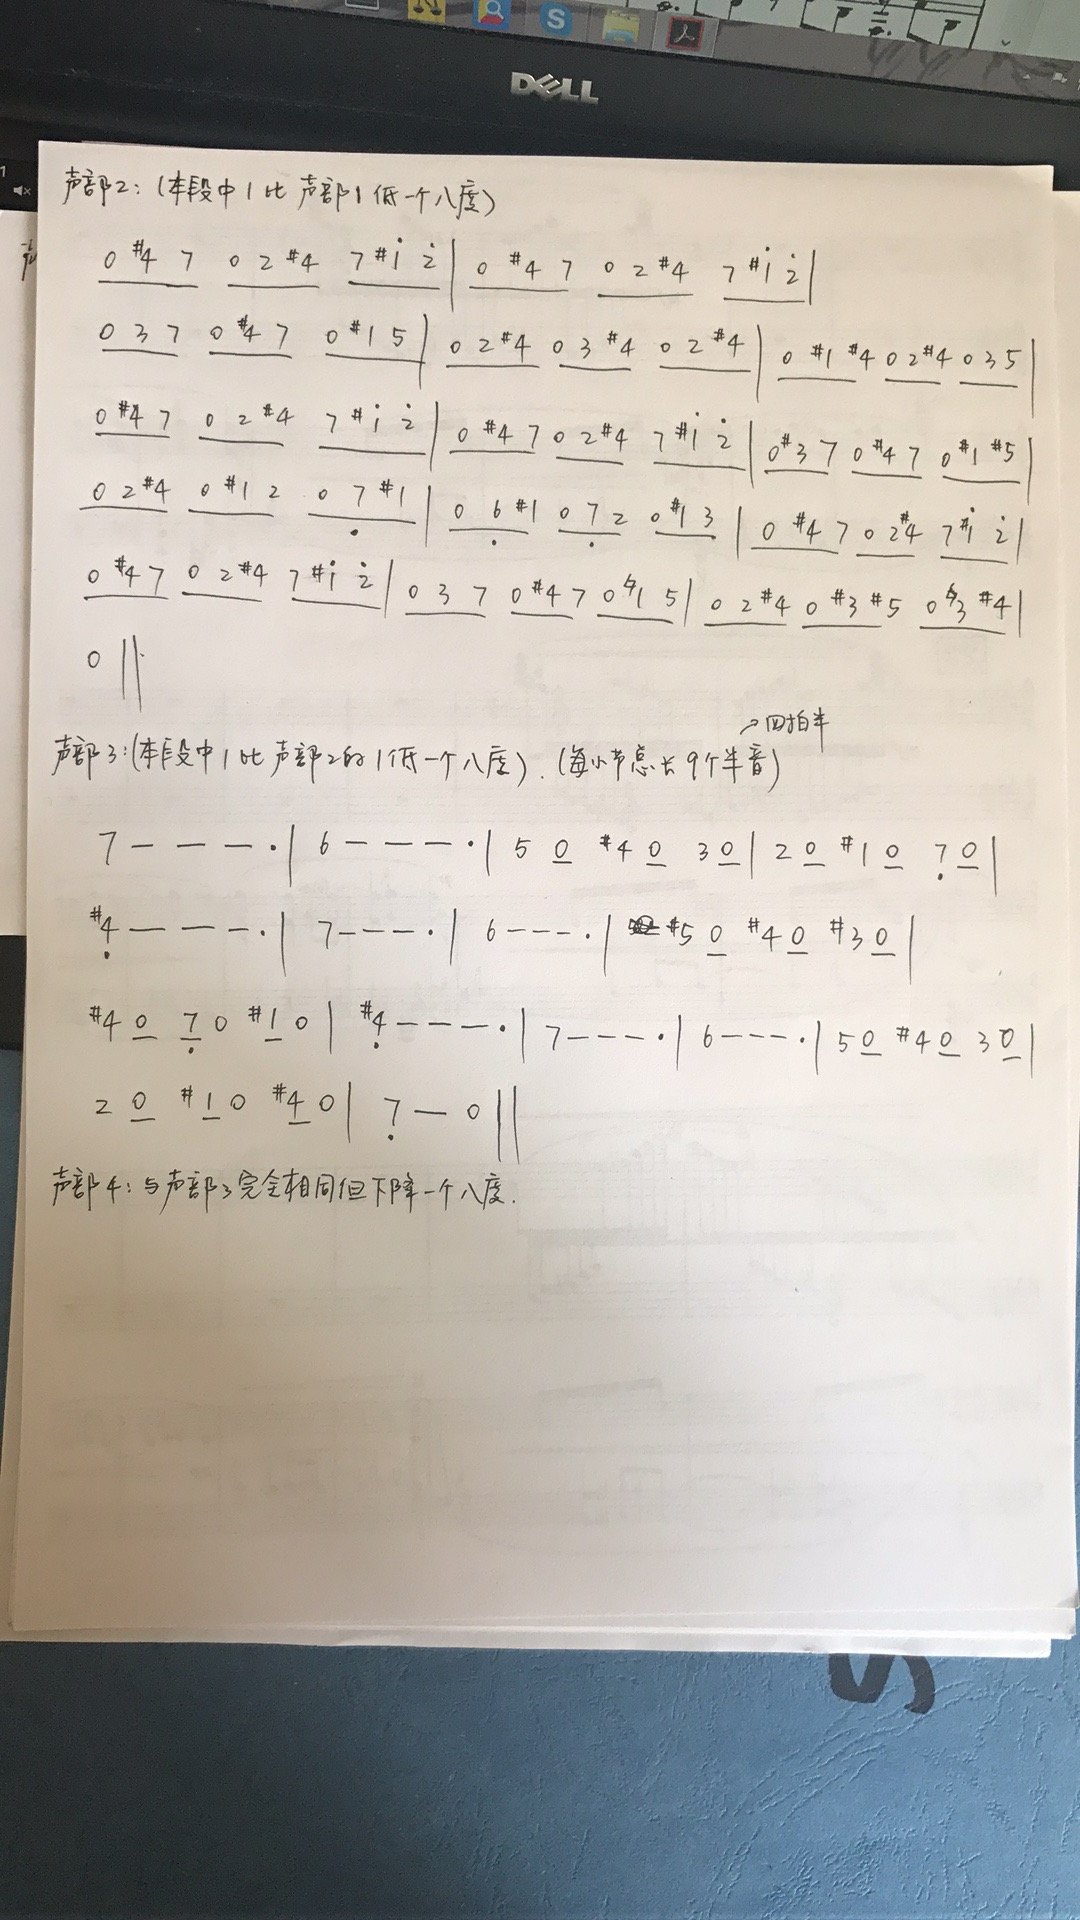 DELL
声部2:(本段中1比声部1低一个八度)
0 #4 7 0 2 #4 7 #i̇ 2̇ | 0 #4 7 0 2 #4 7 #i̇ 2̇ |
0 3 7 0 #4 7 0 #1 5 | 0 2 #4 0 3 #4 0 2 #4 | 0 #1 #4 0 2 #4 0 3 5 |
0 #4 7 0 2 #4 7 #i̇ 2̇ | 0 #4 7 0 2 #4 7 #i̇ 2̇ | 0 #3 7 0 #4 7 0 #1 #5 |
0 2 #4 0 #1 2 0 7̣ #1 | 0 6̣ #1 0 7̣ 2 0 #1 3 | 0 #4 7 0 2 #4 7 #i̇ 2̇ |
0 #4 7 0 2 #4 7 #i̇ 2̇ | 0 3 7 0 #4 7 0 ♮1 5 | 0 2 #4 0 #3 #5 0 ♮3 #4 |
0 ||
→四拍半
声部3:(本段中1比声部2的1低一个八度).(每小节总长9个半音)
7 — — — · | 6 — — — · | 5 0 #4 0 3 0 | 2 0 #1 0 7̣ 0 |
#4̣ — — — · | 7 — — — · | 6 — — — · | #5 0 #4 0 #3 0 |
#4 0 7̣ 0 #1 0 | #4̣ — — — · | 7 — — — · | 6 — — — · | 5 0 #4 0 3 0 |
2 0 #1 0 #4 0 | 7̣ — 0 ||
声部4:与声部3完全相同但下降一个八度.
S